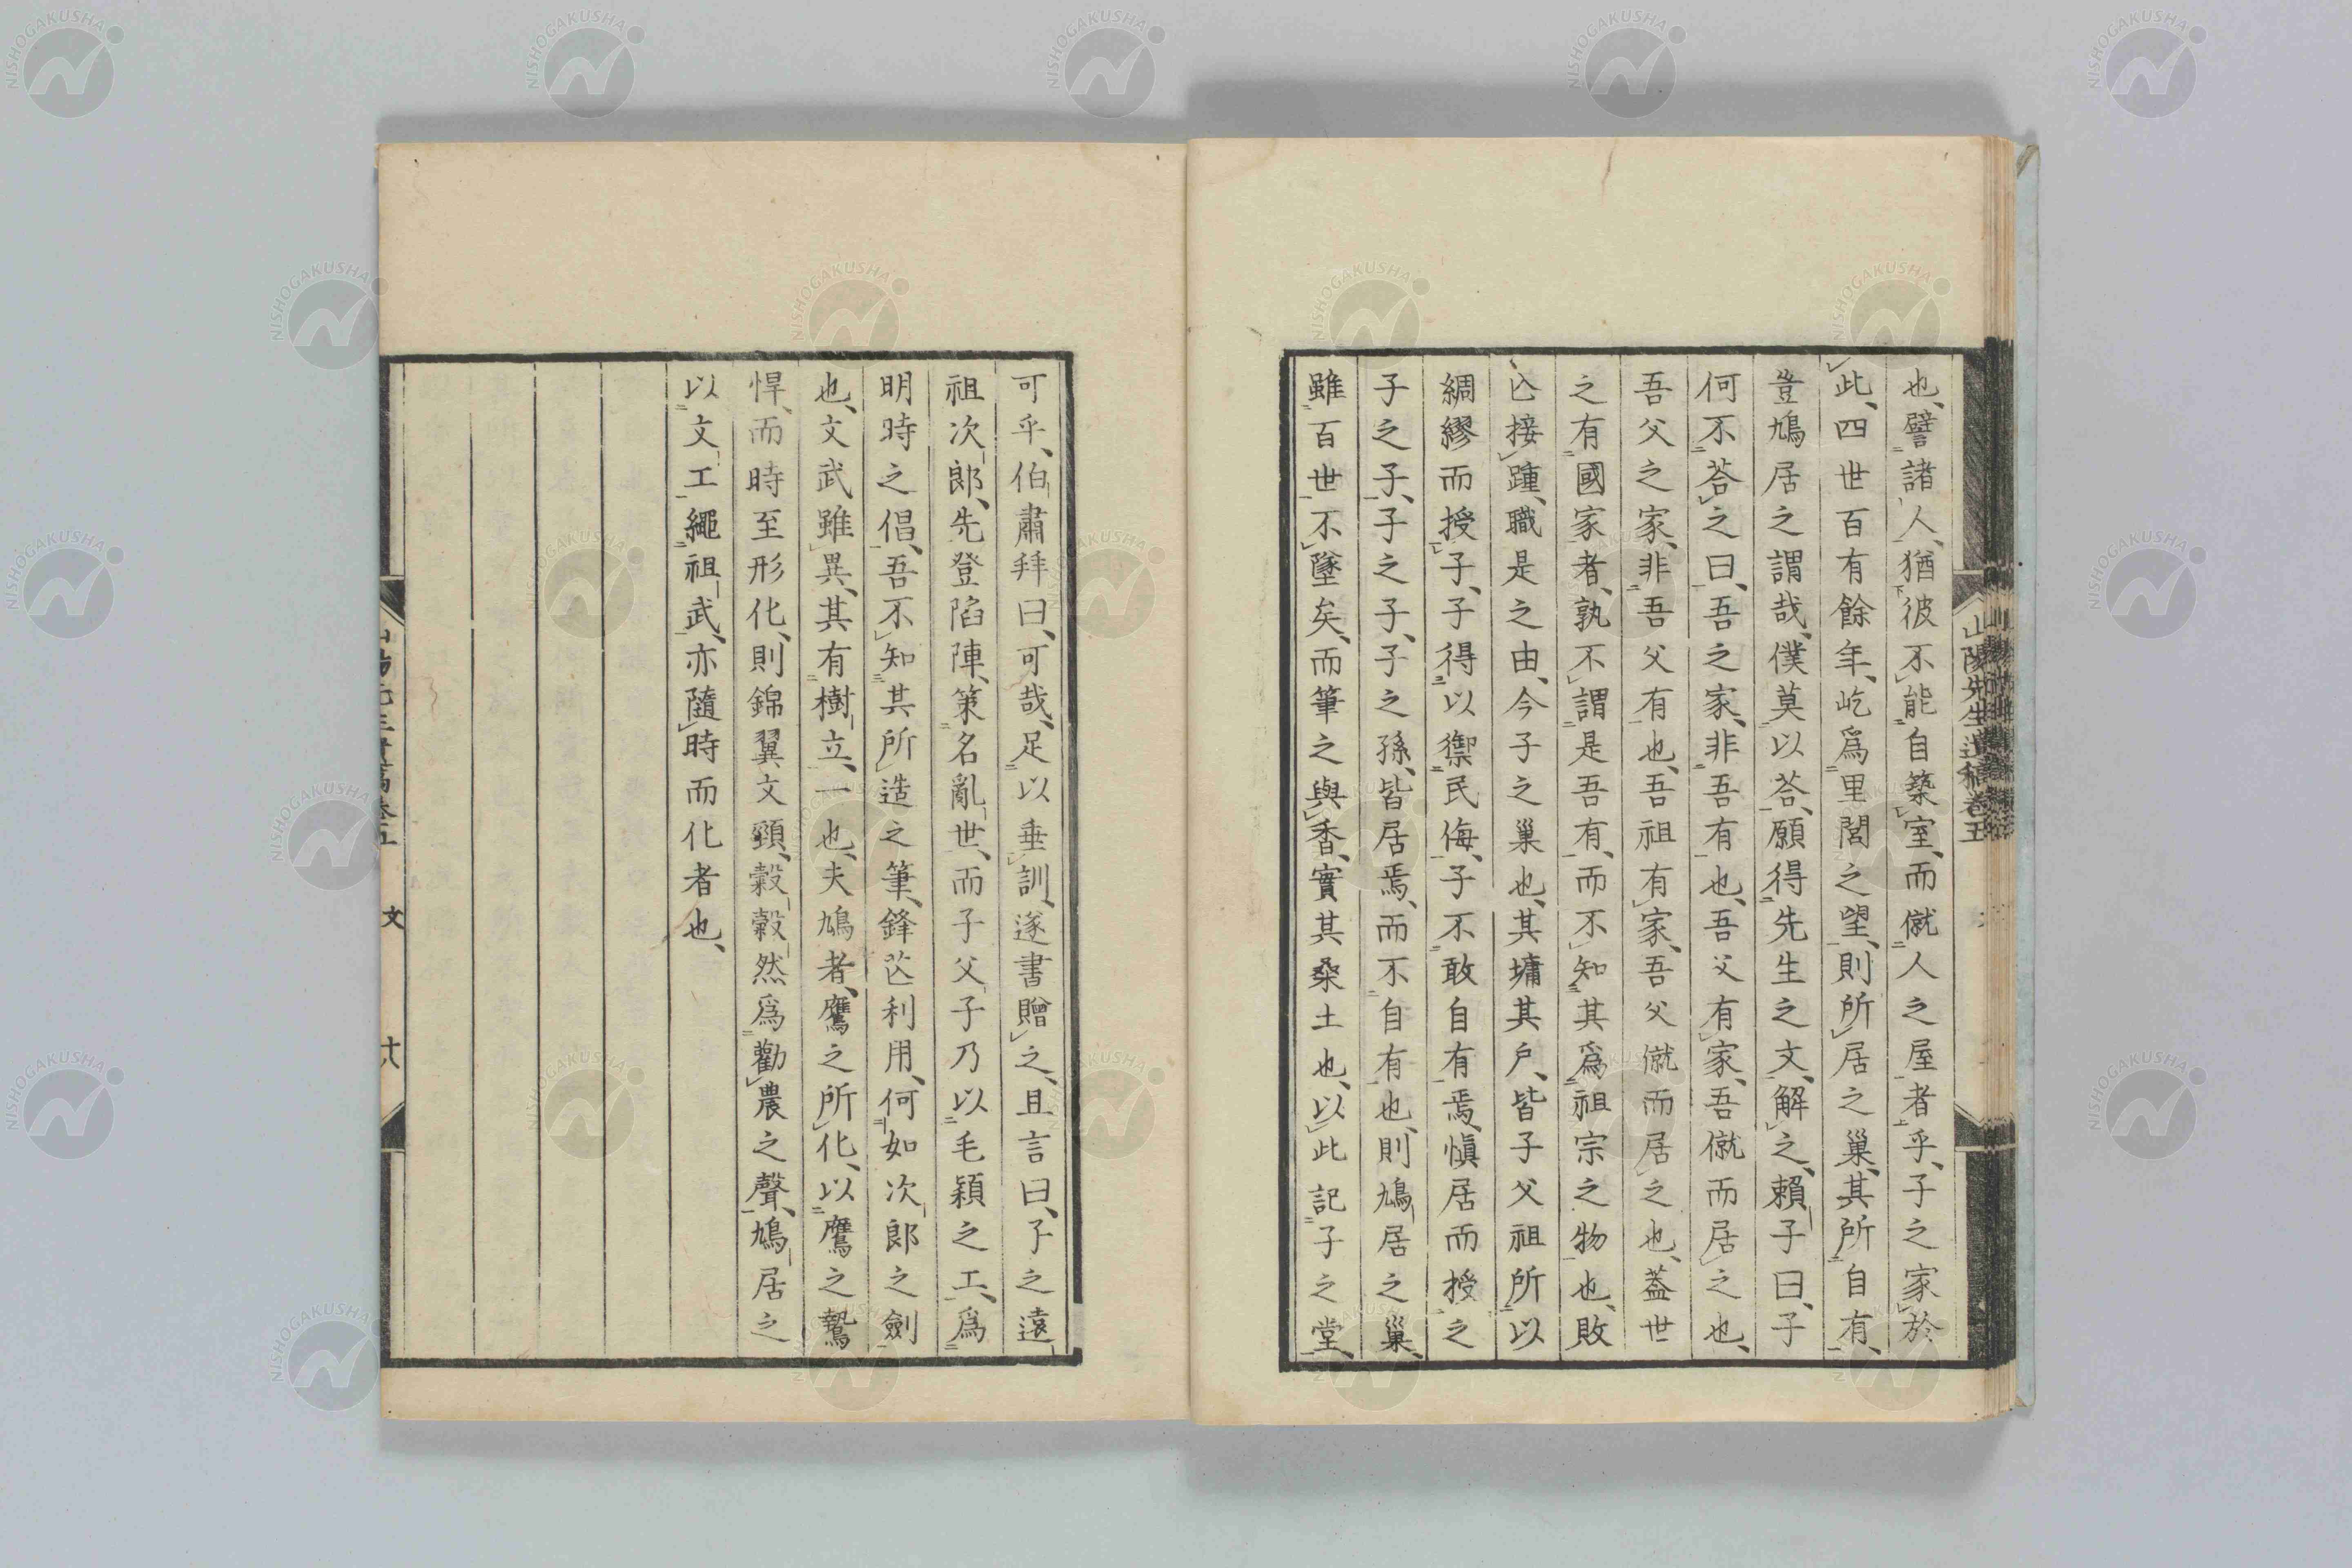 也、譬諸人、猶彼不能自築室、而僦人之屋者乎、子之家於
此、四世百有餘年、屹爲里閭之望、則所居之巢、其所自有、
豈鳩居之謂哉、僕莫以荅、願得先生之文、解之、賴子曰、子
何不荅之曰、吾之家、非吾有也、吾父有家、吾僦而居之也、
吾父之家、非吾父有也、吾祖有家、吾父僦而居之也、蓋世
之有國家者、孰不謂是吾有、而不知其爲祖宗之物也、敗
亾接踵、職是之由、今子之巢也、其墉其戶、皆子父祖所以
綢繆而授子、子得以禦民侮、子不敢自有焉、愼居而授之
子之子、子之子、子之孫、皆居焉、而不自有也、則鳩居之巢、
雖百世不墜矣、而筆之與香、實其桑土也、以此記子之堂、
可乎、伯肅拜曰、可哉、足以垂訓、遂書贈之、且言曰、子之遠
祖次郎、先登陷陣、策名亂世、而子父子乃以毛穎之工、爲
明時之倡、吾不知其所造之筆、鋒芒利用、何如次郎之劍
也、文武雖異、其有樹立、一也、夫鳩者、鷹之所化、以鷹之鷙
悍、而時至形化、則錦翼文頸、穀穀然爲勸農之聲、鳩居之
以文工繩祖武、亦隨時而化者也、
山陽先生遺稿卷五
山陽先生遺稿卷五 文 十八
NISHOGAKUSHA